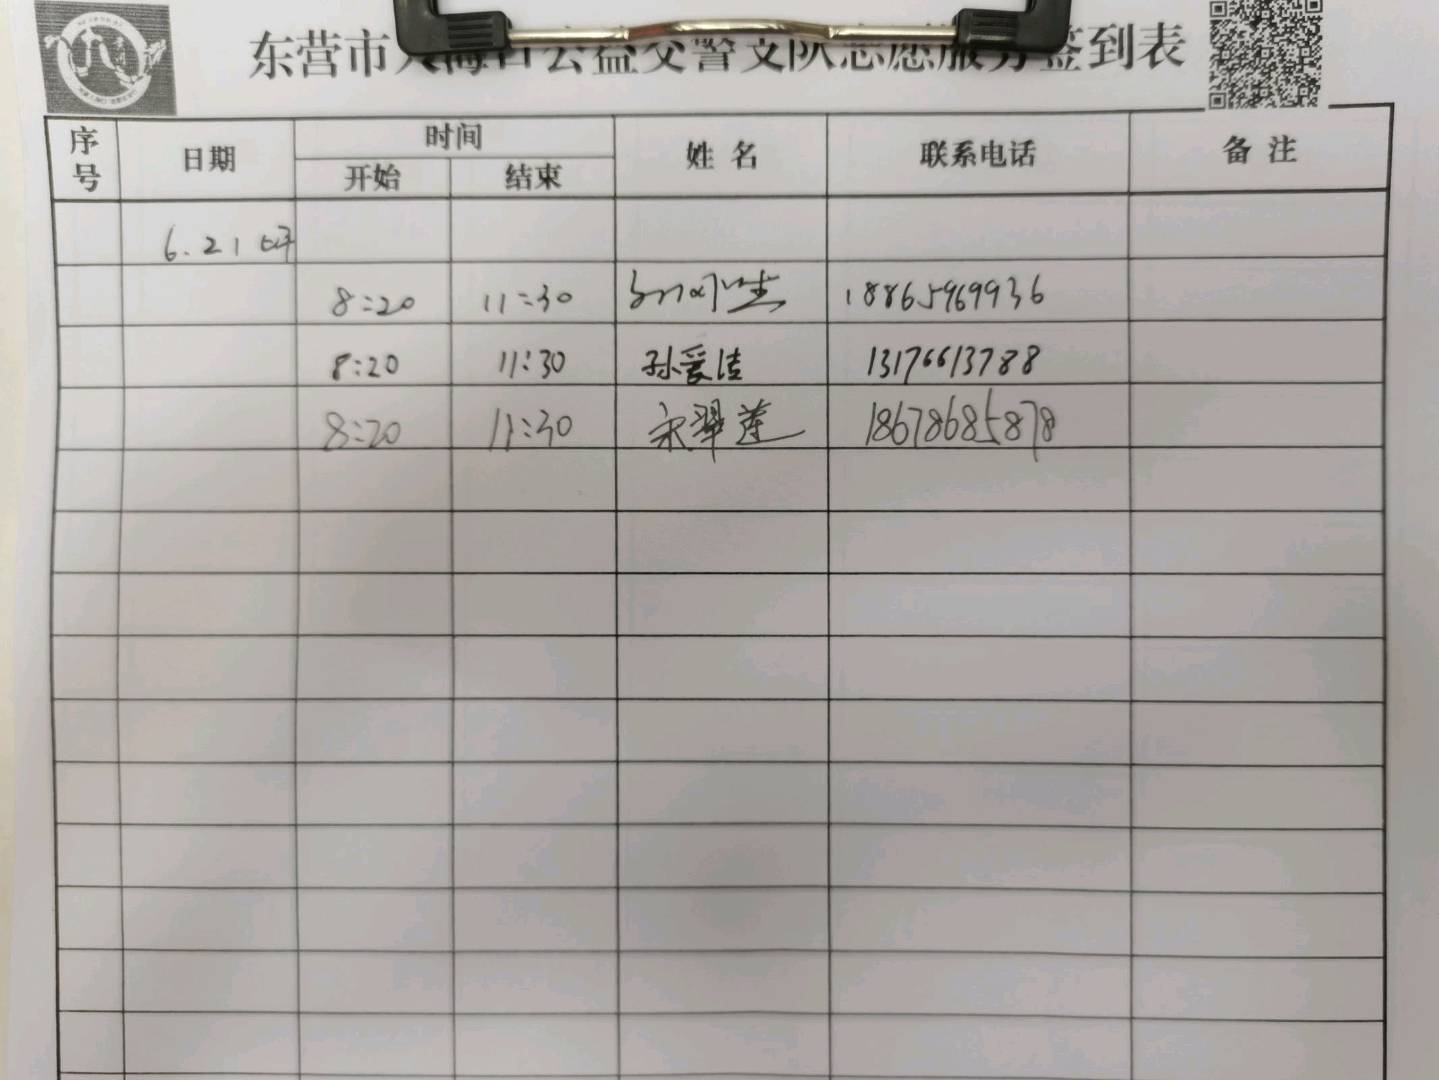 东营市入海口公益交警支队志愿服务签到表
序号 日期 时间 姓名 联系电话 备注
开始 结束
6.21
8:20 11:30 18865969936
8:20 11:30 孙爱洁 13176613788
8:20 11:30 宋翠莲 18678685878